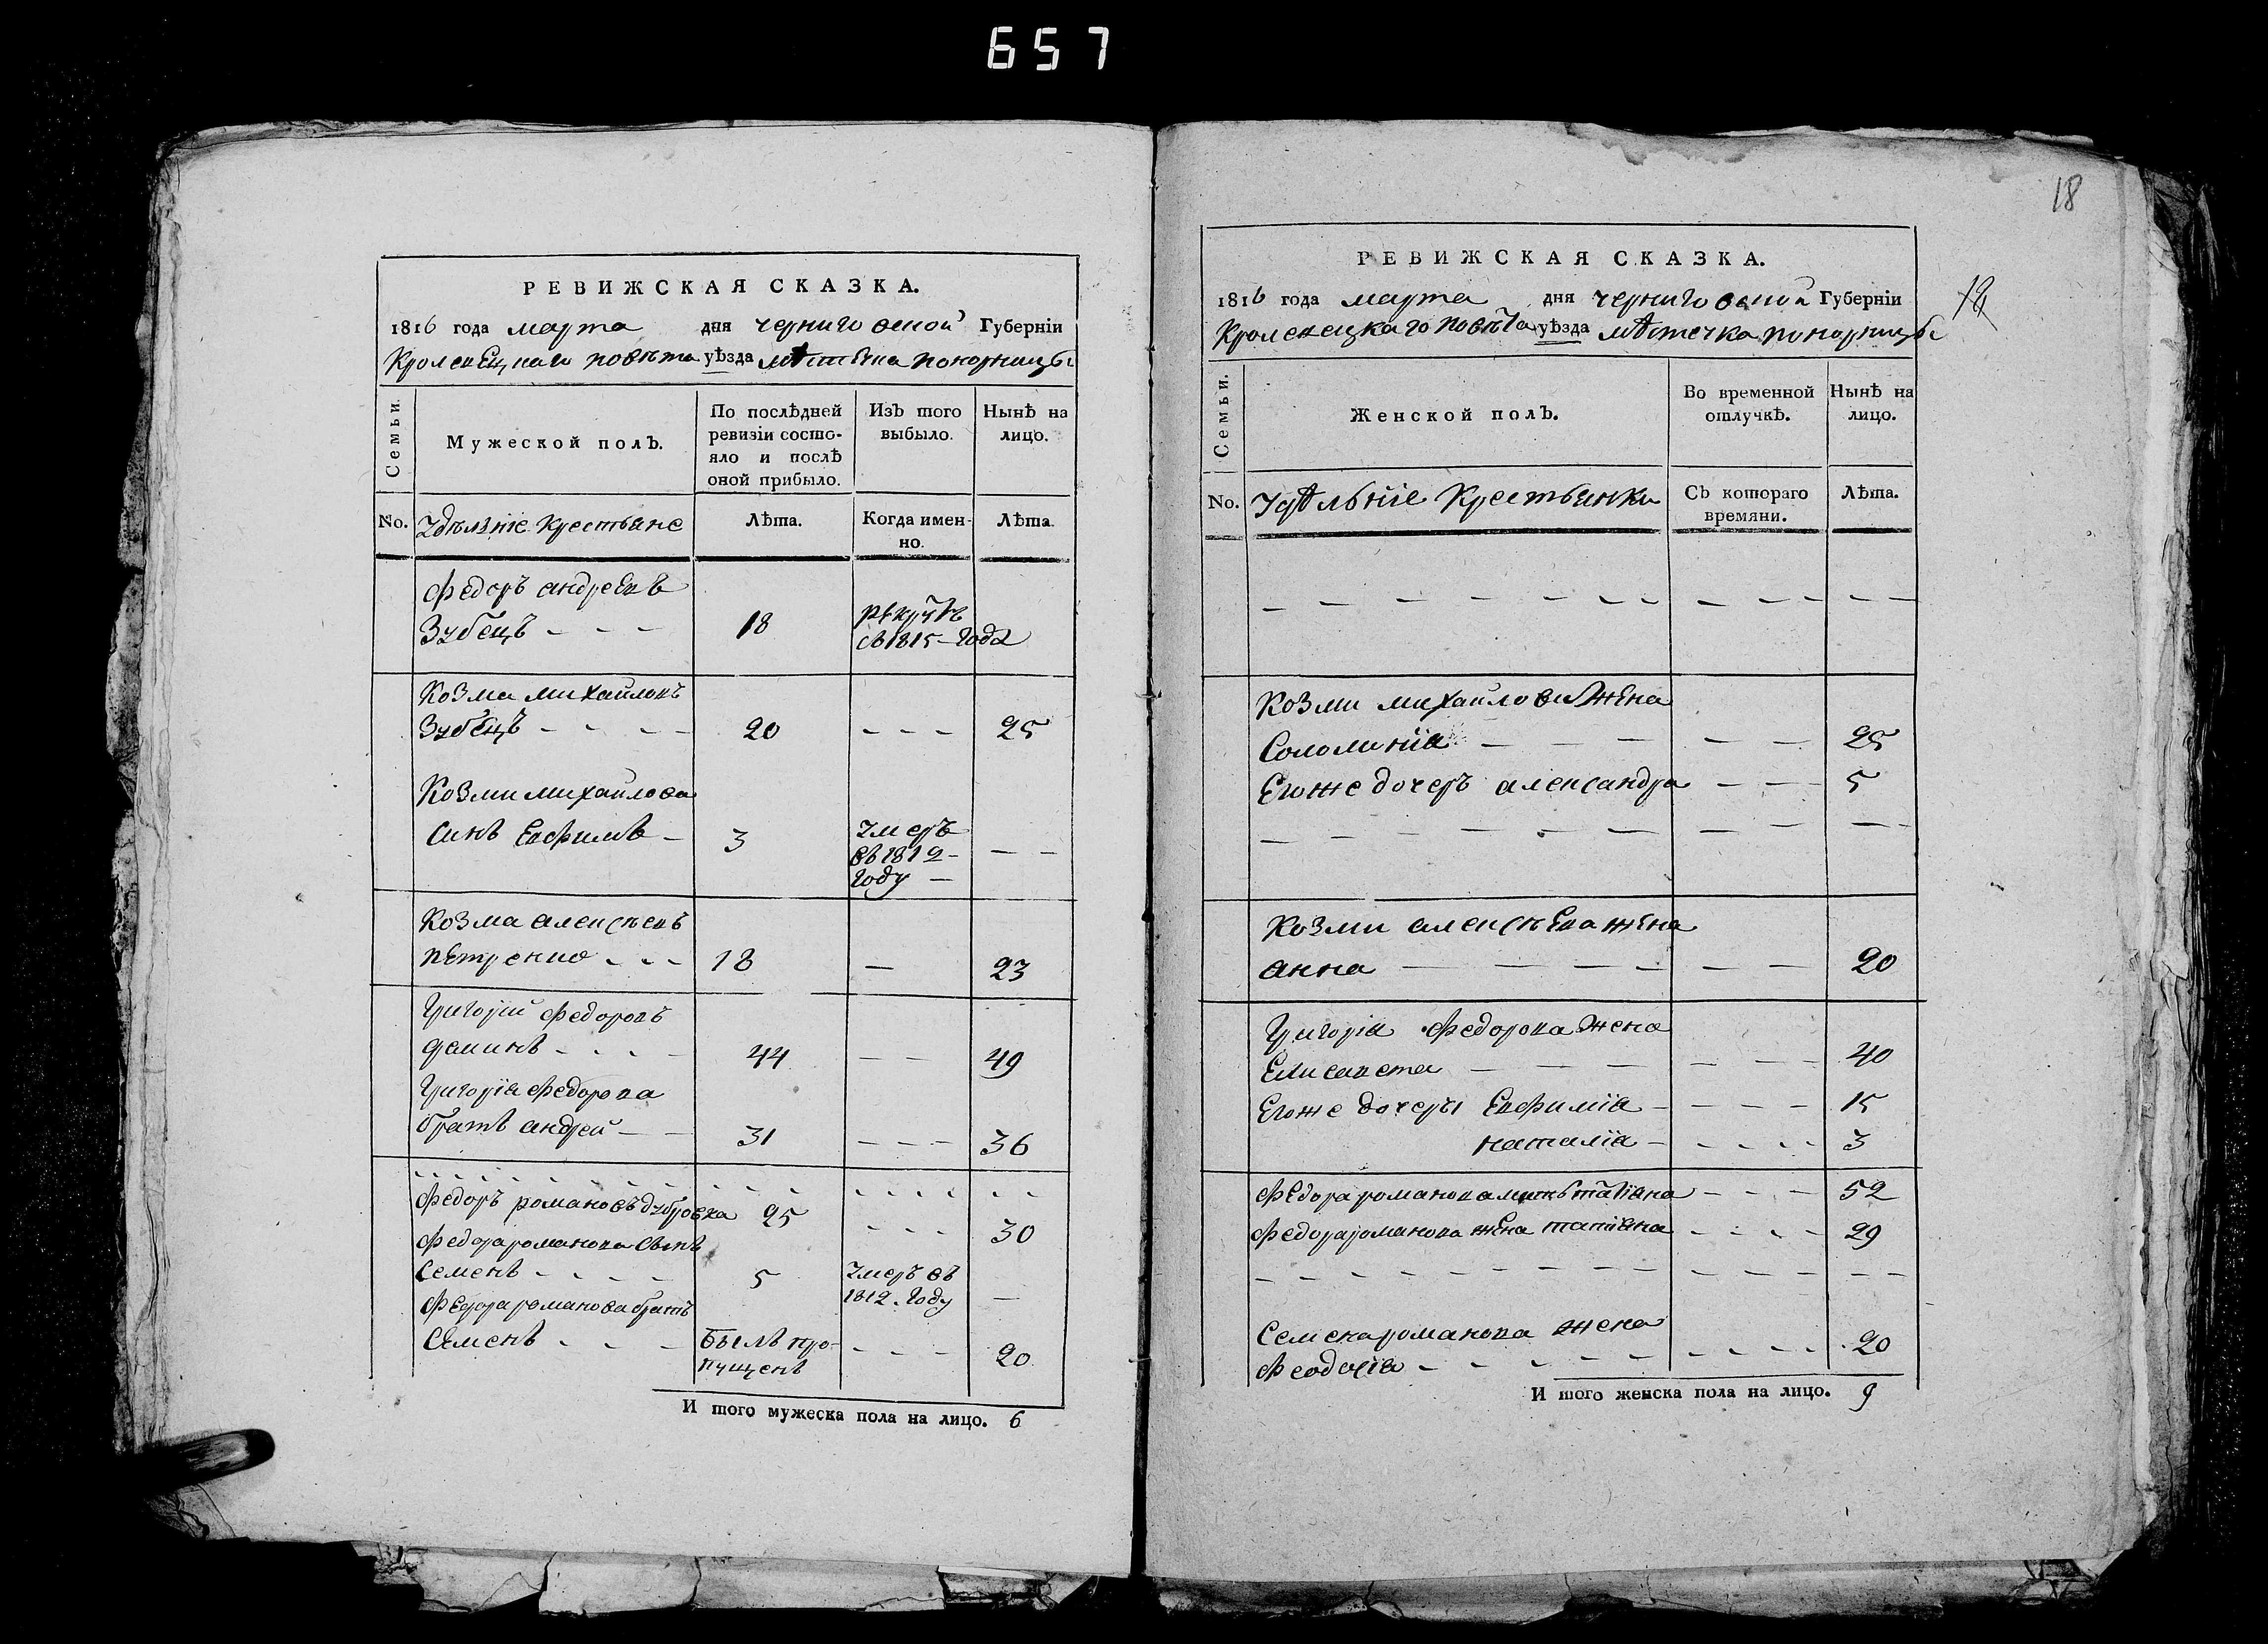 657
РЕВИЖСКАЯ СКАЗКА.
1816 года марта дня черниговской Губерніи
Кролевецкаго повѣта уѣзда мѣстечка понорницы
Семьи.
Мужеской полъ.
По послѣдней ревизіи состояло и послѣ оной прибыло.
Изъ того выбыло.
Нынѣ на лицо.
No.
Удѣлніе крестьяне
Лѣта.
Когда именно.
Лѣта.
Федоръ андреевъ
Зубецъ - - - 18 рекрутъ
съ 1815 - года
Козма михайловъ
Зубецъ - - - - 20 - - - 25
Козми михайлова
синъ Евфимъ - 3 умеръ - -
въ 1812 -
году -
Козма алексѣевъ
петренко - - - 18 - 23
григорій федоровъ
деминъ - - - - 44 - - 49
григорія федорова
братъ андрей - - 31 - - - 36
Федоръ романовъ дубровка 25 - - - 30
Федора романова сынъ
Семенъ - - - - 5 умеръ въ -
1812 году
Федора романова братъ
Семенъ - - - Былъ про- - - - 20
пущенъ
И того мужеска пола на лицо. 6
18
РЕВИЖСКАЯ СКАЗКА.
1816 года марта дня черниговской Губерніи
18
Кролевецкаго повѣта уѣзда мѣстечка понорницы
Семьи.
Женской полъ.
Во временной отлучкѣ.
Нынѣ на лицо.
No.
Удѣльніе крестьянки
Съ котораго времяни.
Лѣта.
- - - - - - - - - - - - -
Козми михайлова жена
Соломинія - - - - - 25
Егоже дочеръ александра - - 5
- - - - - - - - - -
Козми алексѣева жена
анна - - - - - - 20
григорія федорова жена
Елисавета - - - - - - 40
Егоже дочеры Евфимія - - - - 15
наталія - - - - - 3
Федора романова мать татіана - - - 52
Федора романова жена татіана - - - - 29
- - - - - - - - - - - - - -
Семена романова жена
Феодосія - - - - - - - - - 20
И того женска пола на лицо. 9